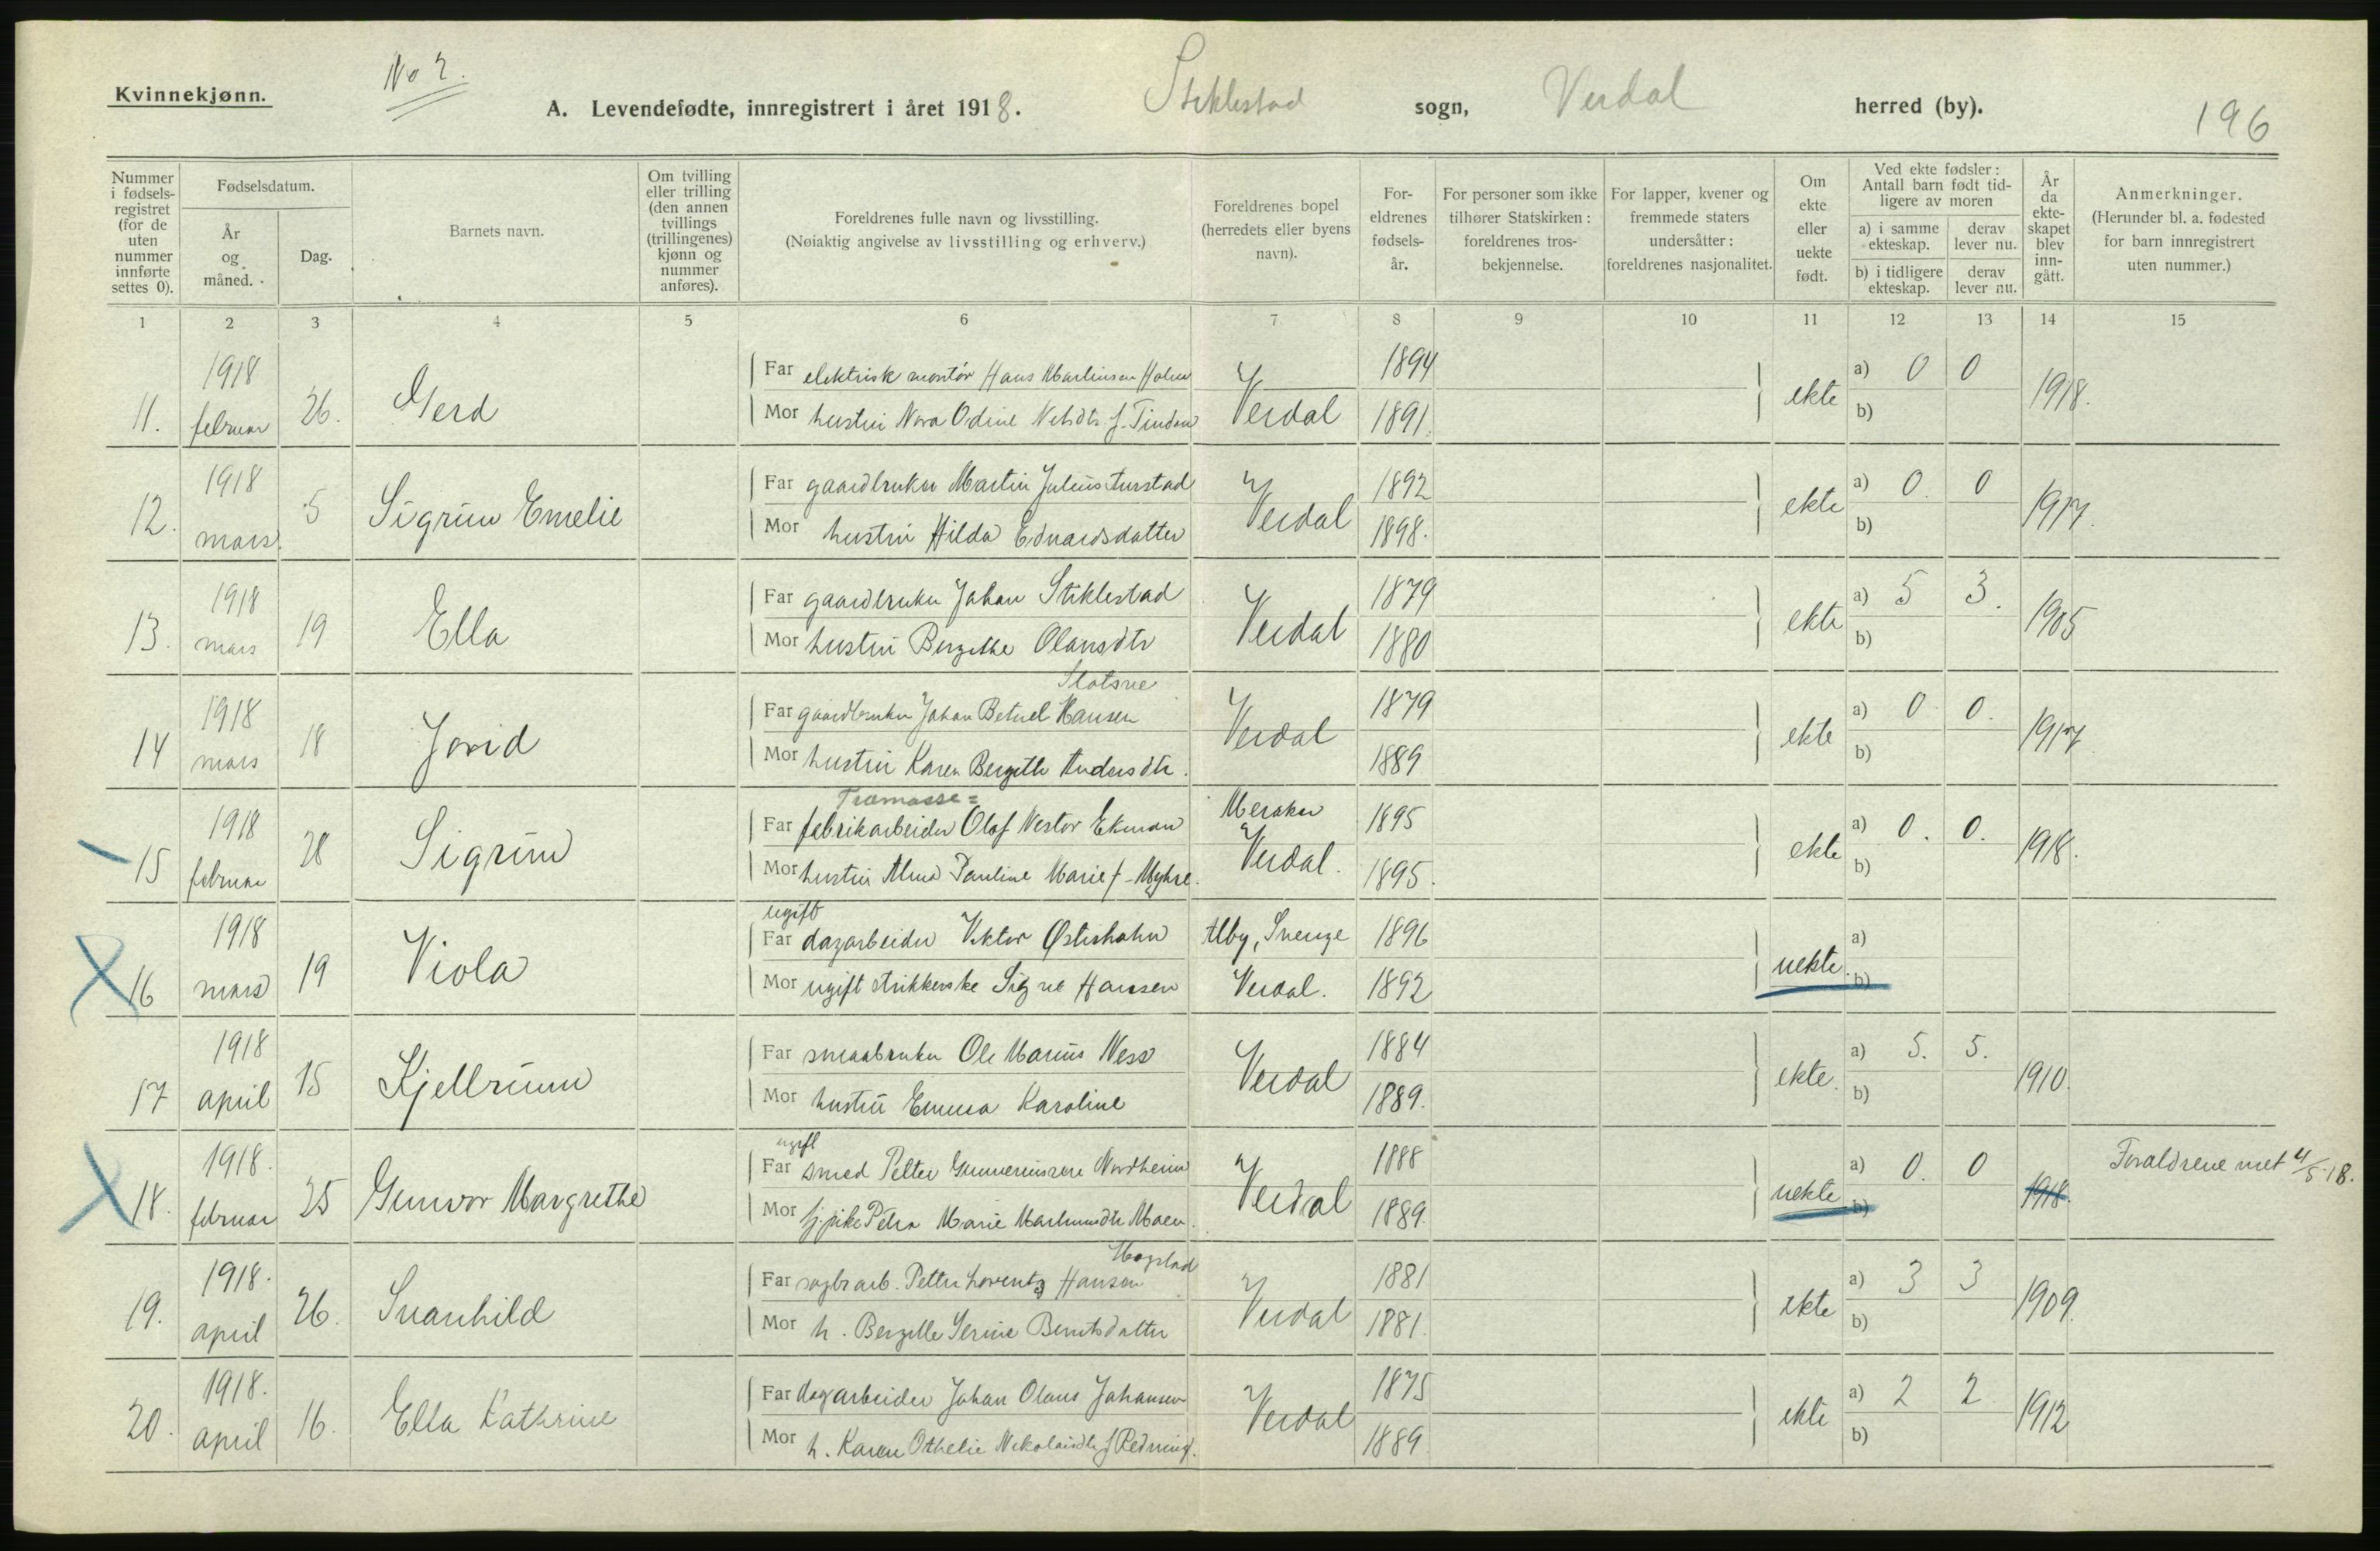 Kvinnekjønn.
No 2.
A. Levendefødte, innregistrert i året 1918.
Stiklestad sogn, Verdal herred (by).
196
Nummer i fødsels- registret (for de uten nummer innførte settes 0).
Fødselsdatum.
År og måned.
Dag.
Barnets navn.
Om tvilling eller trilling (den annen tvillings (trillingenes) kjønn og nummer anføres).
Foreldrenes fulle navn og livsstilling.
(Nøiaktig angivelse av livsstilling og erhverv.)
Foreldrenes bopel (herredets eller byens navn).
For- eldrenes fødsels- år.
For personer som ikke tilhører Statskirken: foreldrenes tros- bekjennelse.
For lapper, kvener og fremmede staters undersåtter: foreldrenes nasjonalitet.
Om ekte eller uekte født.
Ved ekte fødsler: Antall barn født tid- ligere av moren
a) i samme ekteskap.
derav lever nu.
b) i tidligere ekteskap.
derav lever nu.
År da ekte- skapet blev inn- gått.
Anmerkninger.
(Herunder bl. a. fødested for barn innregistrert uten nummer.)
1 2 3 4 5 6 7 8 9 10 11 12 13 14 15
11. 1918 februar 26. Gerd
Far elektrisk montør Hans Martinsen Holm 1894
Mor hustru Nora Odine f. Tinden Verdal 1891.
ekte a) 0 0 b) 1918.
12. 1918 mars. 5 Sigrun Emelie
Far gaardbruker Martin Julius 1892
Mor hustru Hilda Edvardsdatter Verdal 1898.
ekte a) 0. 0 b) 1917.
13. 1918 mars 19 Ella
Far gaardbruker Johan Stiklestad 1879
Mor hustru Bergithe Olausdtr Verdal 1880
ekte a) 5 3. b) 1905
14 1918 mars 18 Jorid
Slotsve
Far gaardbruker Johan Betuel Hansen 1879
Mor hustru Karen Bergitte Andersdtr. Verdal 1889
ekte a) 0 0. b) 1917
15 1918 februar 28 Sigrun
Træmasse=
Far fabrikarbeider Olaf Nestor Ekman Meraker 1895
Mor hustru Alma Pauline Marie f. Myhre. Verdal. 1895.
ekte a) 0. 0. b) 1918.
16 1918 mars 19 Viola
ugift
Far dagarbeider Viktor Østerhahn Alby, Sverige 1896
Mor ugift strikkerske Signe Hansen Verdal. 1892
uekte. a) b)
17 1918 april 15 Kjellrunn
Far smaabruker Ole Marius Ness 1884
Mor hustru Emma Karoline Verdal 1889.
ekte. a) 5. 5. b) 1910.
18. 1918. februar 25 Gunvor Margrethe
ugift
Far smed Petter Nordheim 1888
Mor pike Petra Marie Moen. Verdal 1889.
uekte a) 0. 0 b) 1918.
Foraldrene viet 4/5-18.
19. 1918. april 26. Svanhild
Mogstad
Far sagbr.arb. Petter Lorents Hansen 1881
Mor h. Bergitte Serine Berntsdatter Verdal 1881.
ekte a) 3 3 b) 1909.
20. 1918. april 16. Ella Kathrine
Far dagarbeider Johan Olaus Johansen 1875
Mor h. Karen Othelie Nikolaisdtr f. Redning. Verdal 1889
ekte a) 2 2 b) 1912